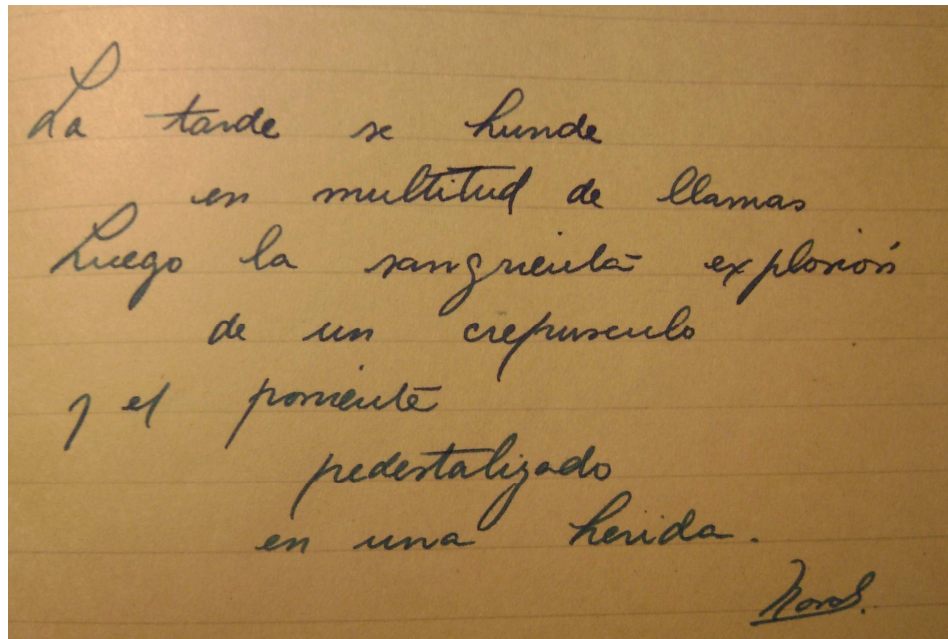 La tarde se hunde
en multitud de llamas
Luego la sangrienta explosión
de un crepusculo
y el poniente
pedestalizado
en una herida.